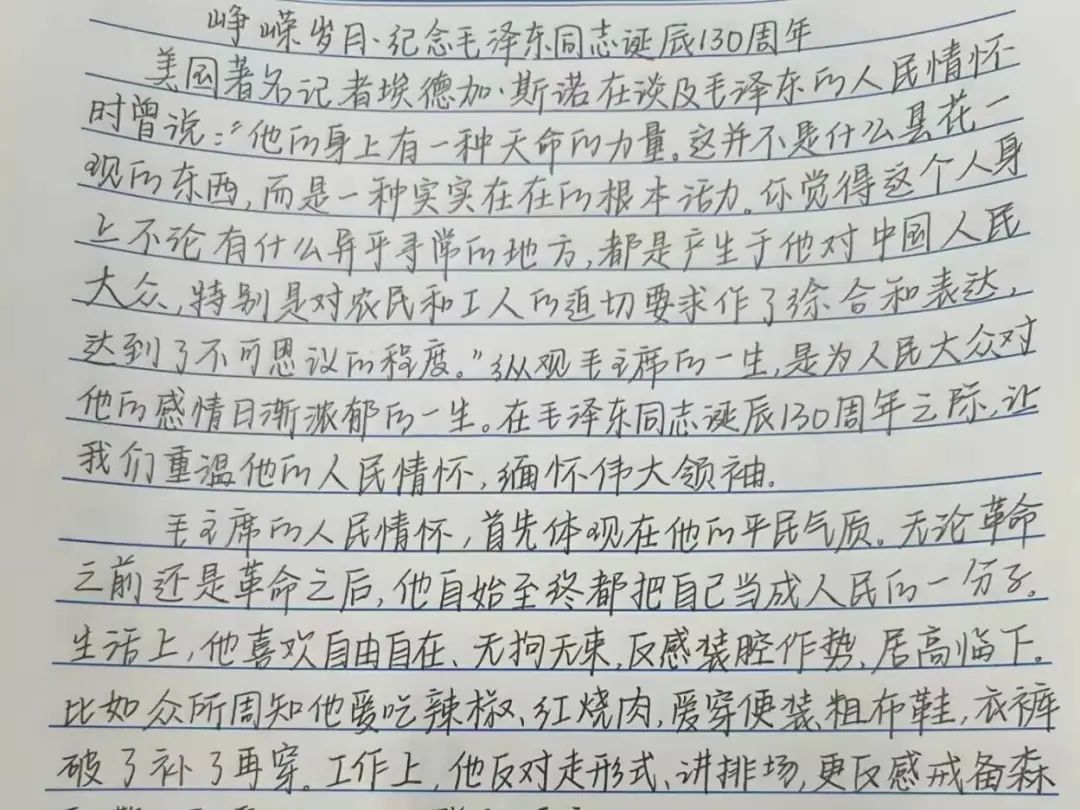 峥嵘岁月·纪念毛泽东同志诞辰130周年
美国著名记者埃德加·斯诺在谈及毛泽东的人民情怀
时曾说：“他的身上有一种天命的力量。这并不是什么昙花一
现的东西，而是一种实实在在的根本活力。你觉得这个人身
上不论有什么异乎寻常的地方，都是产生于他对中国人民
大众，特别是对农民和工人的迫切要求作了综合和表达，
达到了不可思议的程度。”纵观毛主席的一生，是为人民大众对
他的感情日渐浓郁的一生。在毛泽东同志诞辰130周年之际，让
我们重温他的人民情怀，缅怀伟大领袖。
毛主席的人民情怀，首先体现在他的平民气质。无论革命
之前还是革命之后，他自始至终都把自己当成人民的一分子。
生活上，他喜欢自由自在、无拘无束，反感装腔作势、居高临下。
比如众所周知他爱吃辣椒、红烧肉，爱穿便装粗布鞋，衣裤
破了补了再穿。工作上，他反对走形式、讲排场，更反感戒备森